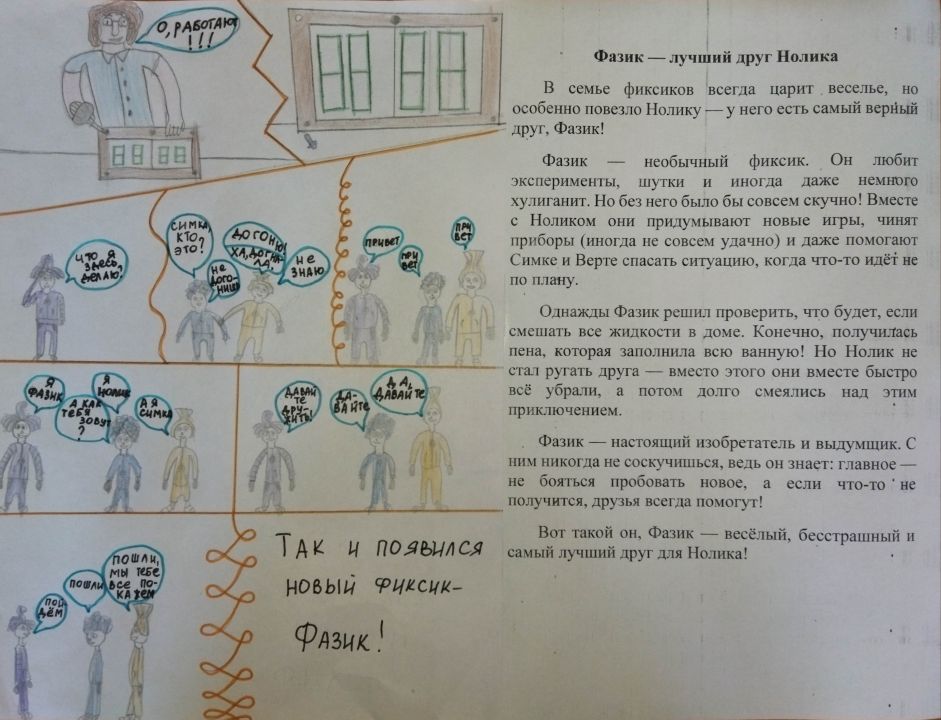 О, РАБОТАЮТ
!!!
ЧТО Я
ЗДЕСЬ
ДЕЛАЮ?
СИМКА,
КТО
ЭТО?
НЕ
ДОГО-
НИШЬ
ДОГОНЮ!
ХА, ДОГНА-
ЛА,
НЕ
ЗНАЮ
ПРИВЕТ
ПРИ
ВЕТ
ПРИ
ВЕТ
Я
ФАЗИК
А КАК
ТЕБЯ
ЗОВУТ
?
Я
НОЛИК
А Я
СИМКА
ДАВАЙ
ТЕ
ДРУ-
ЖИТЬ!
ДА-
ВАЙТЕ
ДА,
ДАВАЙТЕ
ПОЙ
ДЁМ
ПОШЛИ
ПОШЛИ,
МЫ ТЕБЕ
ВСЕ ПО-
КАЖЕМ
ТАК И ПОЯВИЛСЯ
НОВЫЙ ФИКСИК-
ФАЗИК!
Фазик — лучший друг Нолика
В семье фиксиков всегда царит веселье, но
особенно повезло Нолику — у него есть самый верный
друг, Фазик!
Фазик — необычный фиксик. Он любит
эксперименты, шутки и иногда даже немного
хулиганит. Но без него было бы совсем скучно! Вместе
с Ноликом они придумывают новые игры, чинят
приборы (иногда не совсем удачно) и даже помогают
Симке и Верте спасать ситуацию, когда что-то идёт не
по плану.
Однажды Фазик решил проверить, что будет, если
смешать все жидкости в доме. Конечно, получилась
пена, которая заполнила всю ванную! Но Нолик не
стал ругать друга — вместо этого они вместе быстро
всё убрали, а потом долго смеялись над этим
приключением.
Фазик — настоящий изобретатель и выдумщик. С
ним никогда не соскучишься, ведь он знает: главное —
не бояться пробовать новое, а если что-то не
получится, друзья всегда помогут!
Вот такой он, Фазик — весёлый, бесстрашный и
самый лучший друг для Нолика!